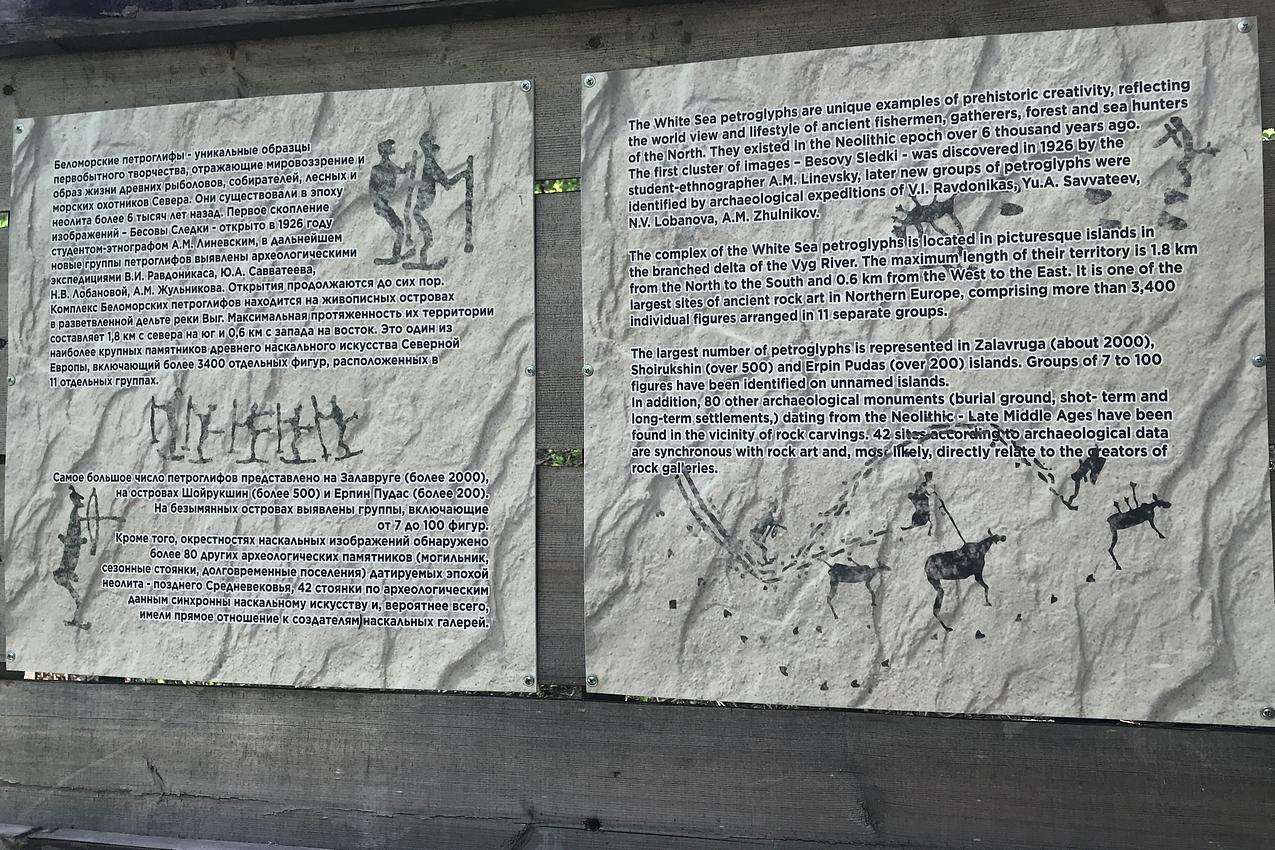 Беломорские петроглифы - уникальные образцы
первобытного творчества, отражающие мировоззрение и
образ жизни древних рыболовов, собирателей, лесных и
морских охотников Севера. Они существовали в эпоху
неолита более 6 тысяч лет назад. Первое скопление
изображений – Бесовы Следки - открыто в 1926 году
студентом-этнографом А.М. Линевским, в дальнейшем
новые группы петроглифов выявлены археологическими
экспедициями В.И. Равдоникаса, Ю.А. Савватеева,
Н.В. Лобановой, А.М. Жульникова. Открытия продолжаются до сих пор.
Комплекс Беломорских петроглифов находится на живописных островах
в разветвленной дельте реки Выг. Максимальная протяженность их территории
составляет 1,8 км с севера на юг и 0,6 км с запада на восток. Это один из
наиболее крупных памятников древнего наскального искусства Северной
Европы, включающий более 3400 отдельных фигур, расположенных в
11 отдельных группах.
Самое большое число петроглифов представлено на Залавруге (более 2000),
на островах Шойрукшин (более 500) и Ерпин Пудас (более 200).
На безымянных островах выявлены группы, включающие
от 7 до 100 фигур.
Кроме того, окрестностях наскальных изображений обнаружено
более 80 других археологических памятников (могильник,
сезонные стоянки, долговременные поселения) датируемых эпохой
неолита - позднего Средневековья, 42 стоянки по археологическим
данным синхронны наскальному искусству и, вероятнее всего,
имели прямое отношение к создателям наскальных галерей.
The White Sea petroglyphs are unique examples of prehistoric creativity, reflecting
the world view and lifestyle of ancient fishermen, gatherers, forest and sea hunters
of the North. They existed in the Neolithic epoch over 6 thousand years ago.
The first cluster of images – Besovy Sledki - was discovered in 1926 by the
student-ethnographer A.M. Linevsky, later new groups of petroglyphs were
identified by archaeological expeditions of V.I. Ravdonikas, Yu.A. Savvateev,
N.V. Lobanova, A.M. Zhulnikov.
The complex of the White Sea petroglyphs is located in picturesque islands in
the branched delta of the Vyg River. The maximum length of their territory is 1.8 km
from the North to the South and 0.6 km from the West to the East. It is one of the
largest sites of ancient rock art in Northern Europe, comprising more than 3,400
individual figures arranged in 11 separate groups.
The largest number of petroglyphs is represented in Zalavruga (about 2000),
Shoirukshin (over 500) and Erpin Pudas (over 200) islands. Groups of 7 to 100
figures have been identified on unnamed islands.
In addition, 80 other archaeological monuments (burial ground, shot- term and
long-term settlements,) dating from the Neolithic - Late Middle Ages have been
found in the vicinity of rock carvings. 42 sites according to archaeological data
are synchronous with rock art and, most likely, directly relate to the creators of
rock galleries.